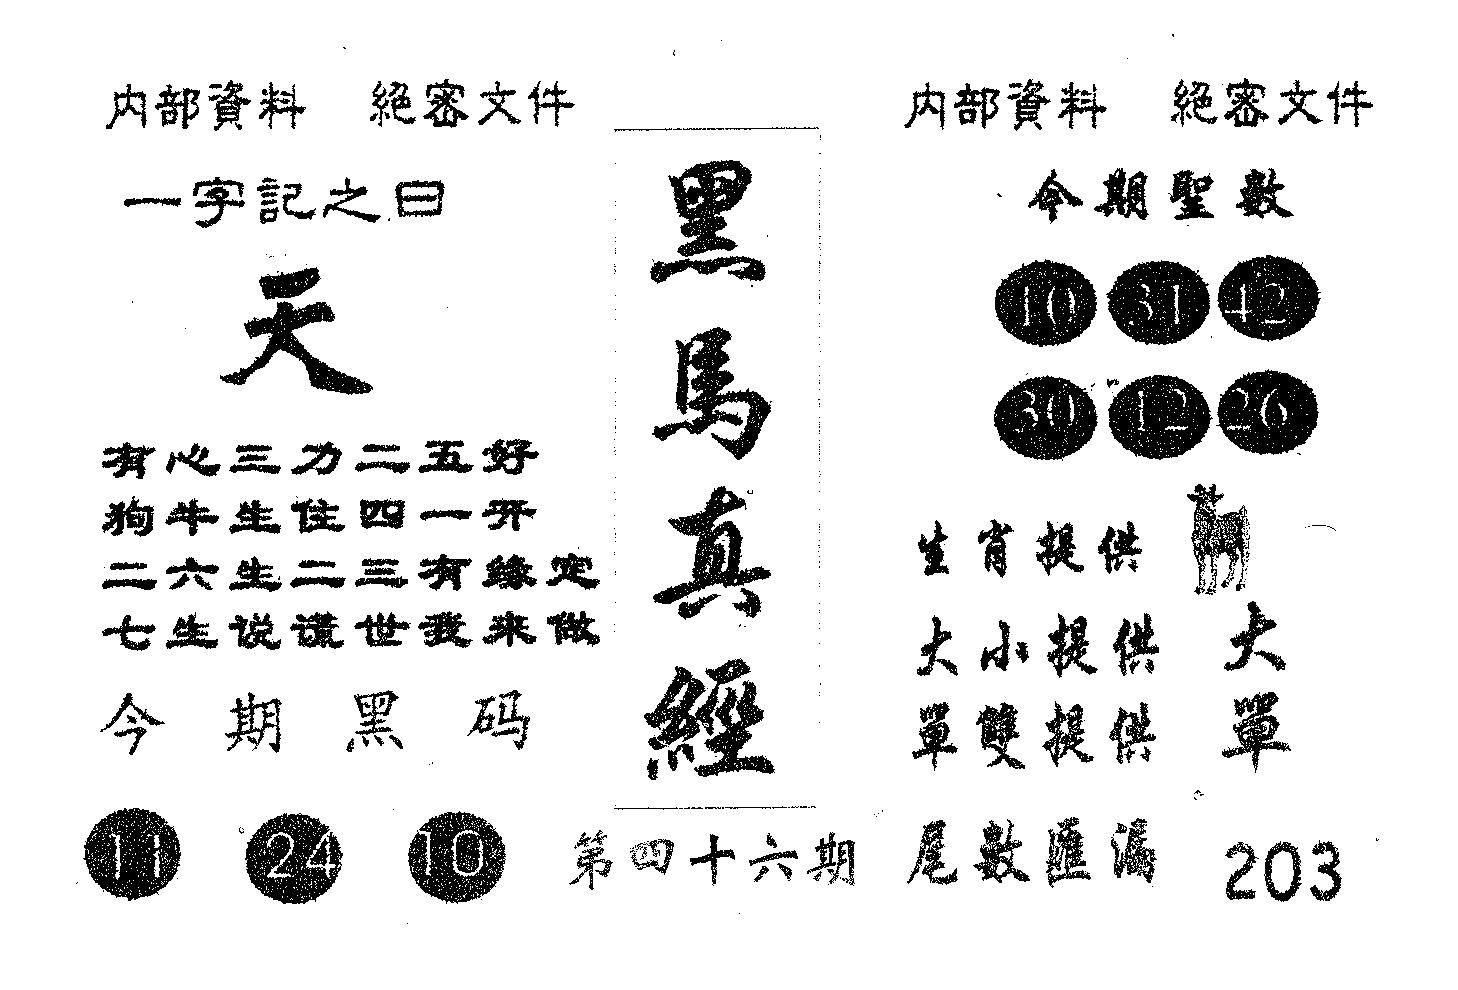 内部資料 絕審文件
一字記之曰
天
有心三力二五好
狗牛生住四一开
二六生二三有緣定
七生说谎世我来做
今期黑码
11 24 10
黑馬真經
第四十六期
内部資料 絕審文件
今期聖數
10 31 42
30 12 26
生肖提供
大小提供 大
單雙提供 單
尾數匯漏 203